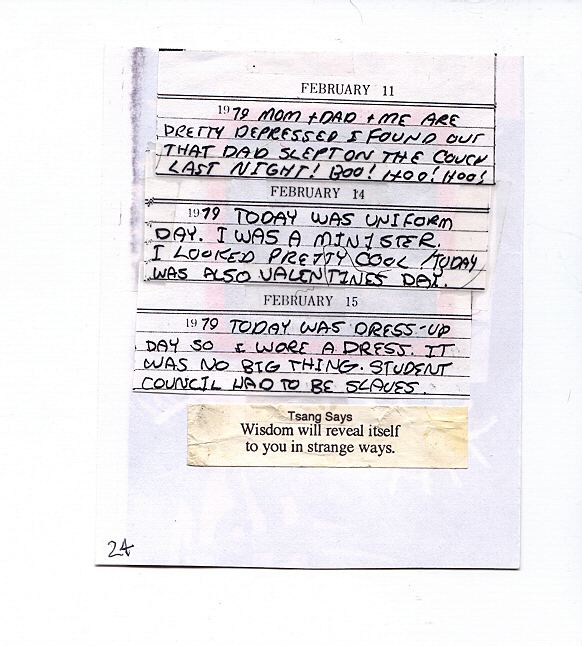 FEBRUARY 11
1979 MOM + DAD + ME ARE
PRETTY DEPRESSED I FOUND OUT
THAT DAD SLEPT ON THE COUCH
LAST NIGHT! BOO! HOO! HOO!
FEBRUARY 14
1979 TODAY WAS UNIFORM
DAY. I WAS A MINISTER.
I LOOKED PRETTY COOL / TODAY
WAS ALSO VALENTINES DAY.
FEBRUARY 15
1979 TODAY WAS DRESS-UP
DAY SO I WORE A DRESS. IT
WAS NO BIG THING. STUDENT
COUNCIL HAD TO BE SLAVES.
Tsang Says
Wisdom will reveal itself
to you in strange ways.
24